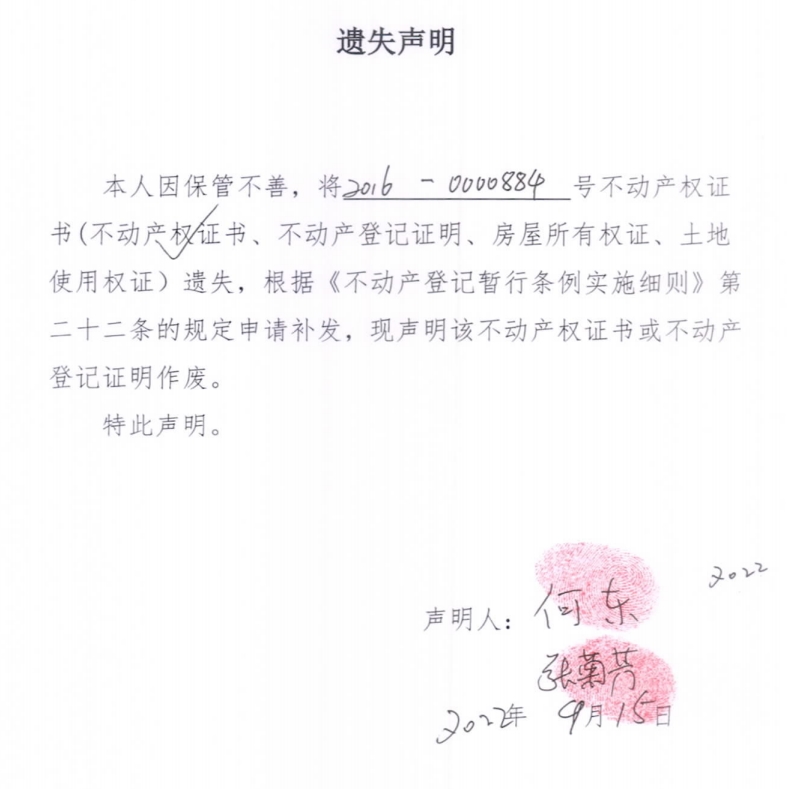 遗失声明
本人因保管不善，将2016-0000884号不动产权证
书(不动产权证书、不动产登记证明、房屋所有权证、土地
使用权证）遗失，根据《不动产登记暂行条例实施细则》第
二十二条的规定申请补发，现声明该不动产权证书或不动产
登记证明作废。
特此声明。
2022
声明人：何东
张菊芳
2022年 9月15日